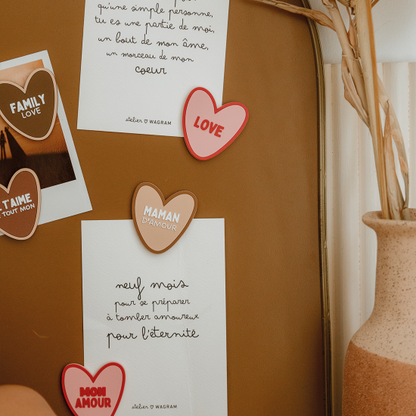 qu'une simple personne,
tu es une partie de moi,
un bout de mon âme,
un morceau de mon
coeur
atelier WAGRAM
LOVE
FAMILY
LOVE
T'AIME
TOUT MON
MAMAN
D'AMOUR
neuf mois
pour se préparer
à tomber amoureux
pour l'éternité
atelier WAGRAM
MON
AMOUR